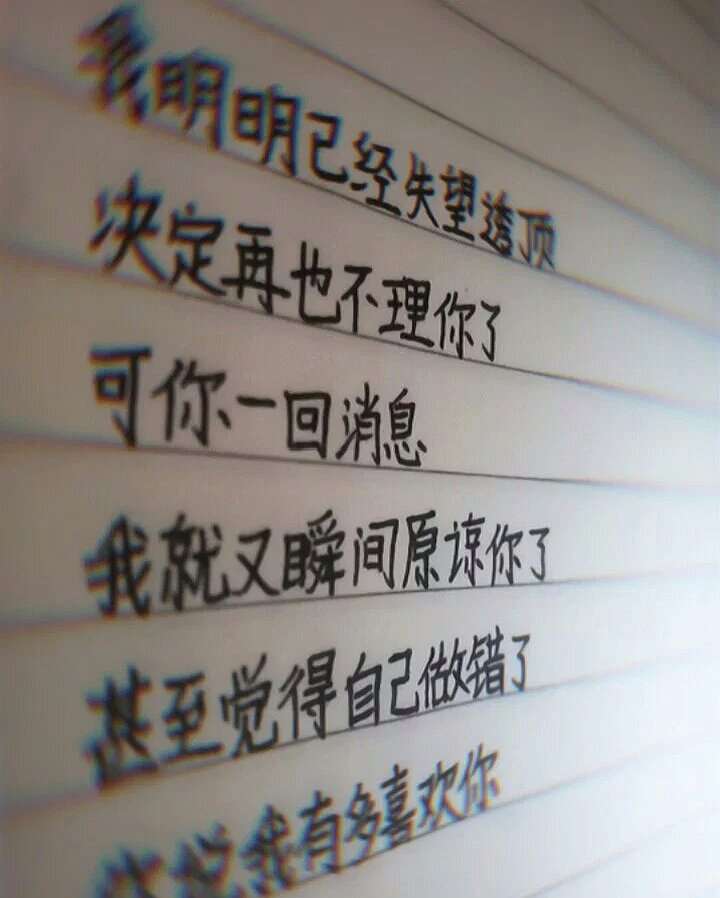 我明明已经失望透顶
决定再也不理你了
可你一回消息
我就又瞬间原谅你了
甚至觉得自己做错了
你说我有多喜欢你